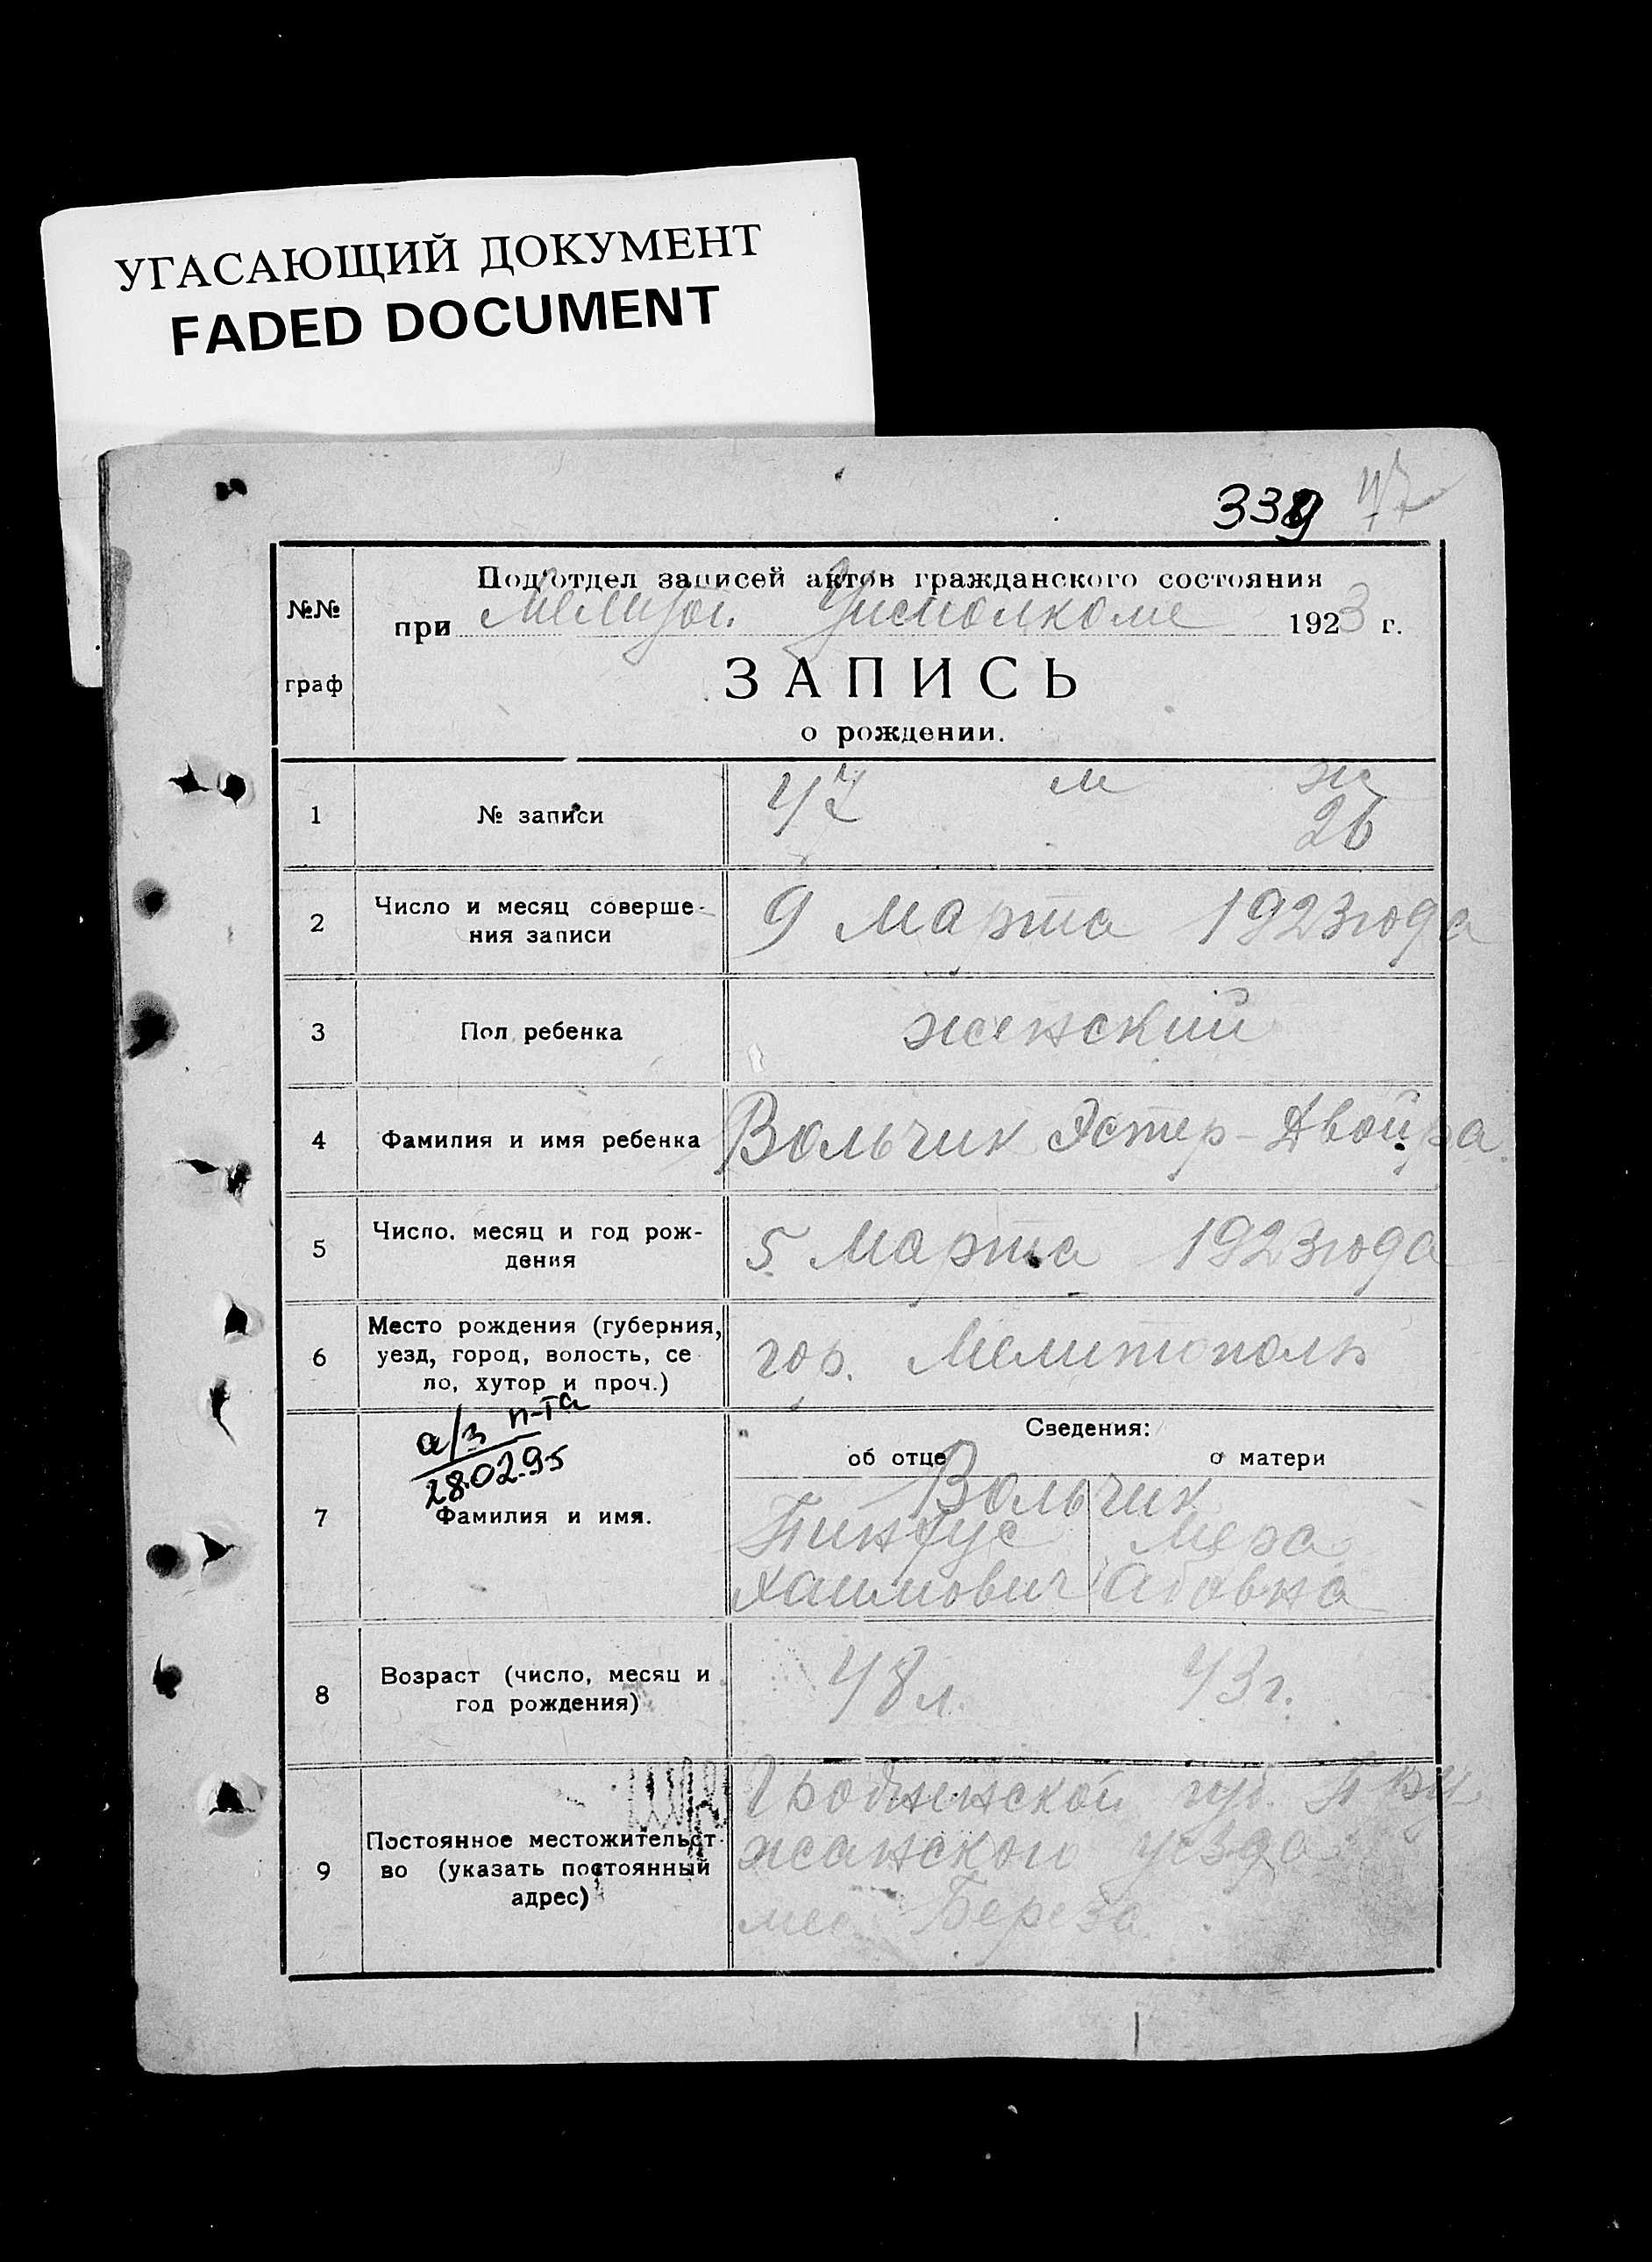 УГАСАЮЩИЙ ДОКУМЕНТ
FADED DOCUMENT
339 47
№№
граф
Под'отдел записей актов гражданского состояния
при Мелитоп. Уисполкоме 1923 г.
ЗАПИСЬ
о рождении.
1 № записи 47 м ж
26
2 Число и месяц соверше-
ния записи 9 Марта 1923 года
3 Пол ребенка женский
4 Фамилия и имя ребенка Вольчик Эстер-Двойра.
5 Число, месяц и год рож-
дения 5 Марта 1923 года
6 Место рождения (губерния,
уезд, город, волость, се
ло, хутор и проч.) гор. Мелитополь
а/з п-та
28.02.95
Сведения:
об отце о матери
7 Фамилия и имя. Вольчик
Пинхус
Хаимович Абовна
8 Возраст (число, месяц и
год рождения) 48 л. 43 г.
9 Постоянное местожительст
во (указать постоянный
адрес) Гродненской губ. Пру
жанского уезда
мес. Береза.